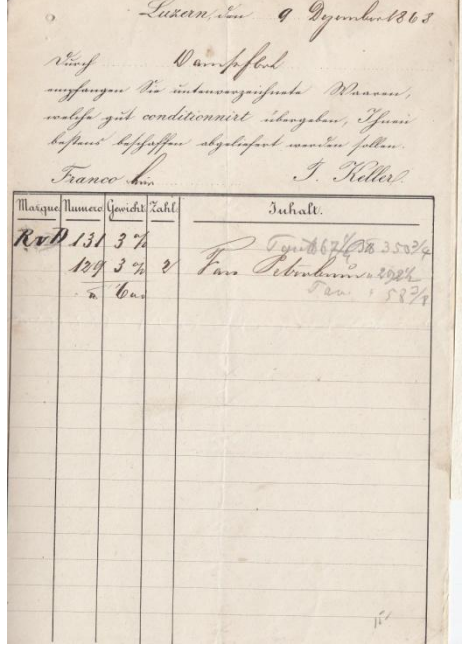 Luzern, den 9 Dezember 1863
Durch Dampfboot
empfangen Sie untenverzeichnete Waaren,
welche gut conditionnirt übergeben, Ihnen
bestens beschaffen abgeliefert werden sollen.
Franco hier J. Keller.
Marque Numero Gewicht Zahl Inhalt.
R v D 131 3 350 3/4
129 3 2 Fass
58 3/8